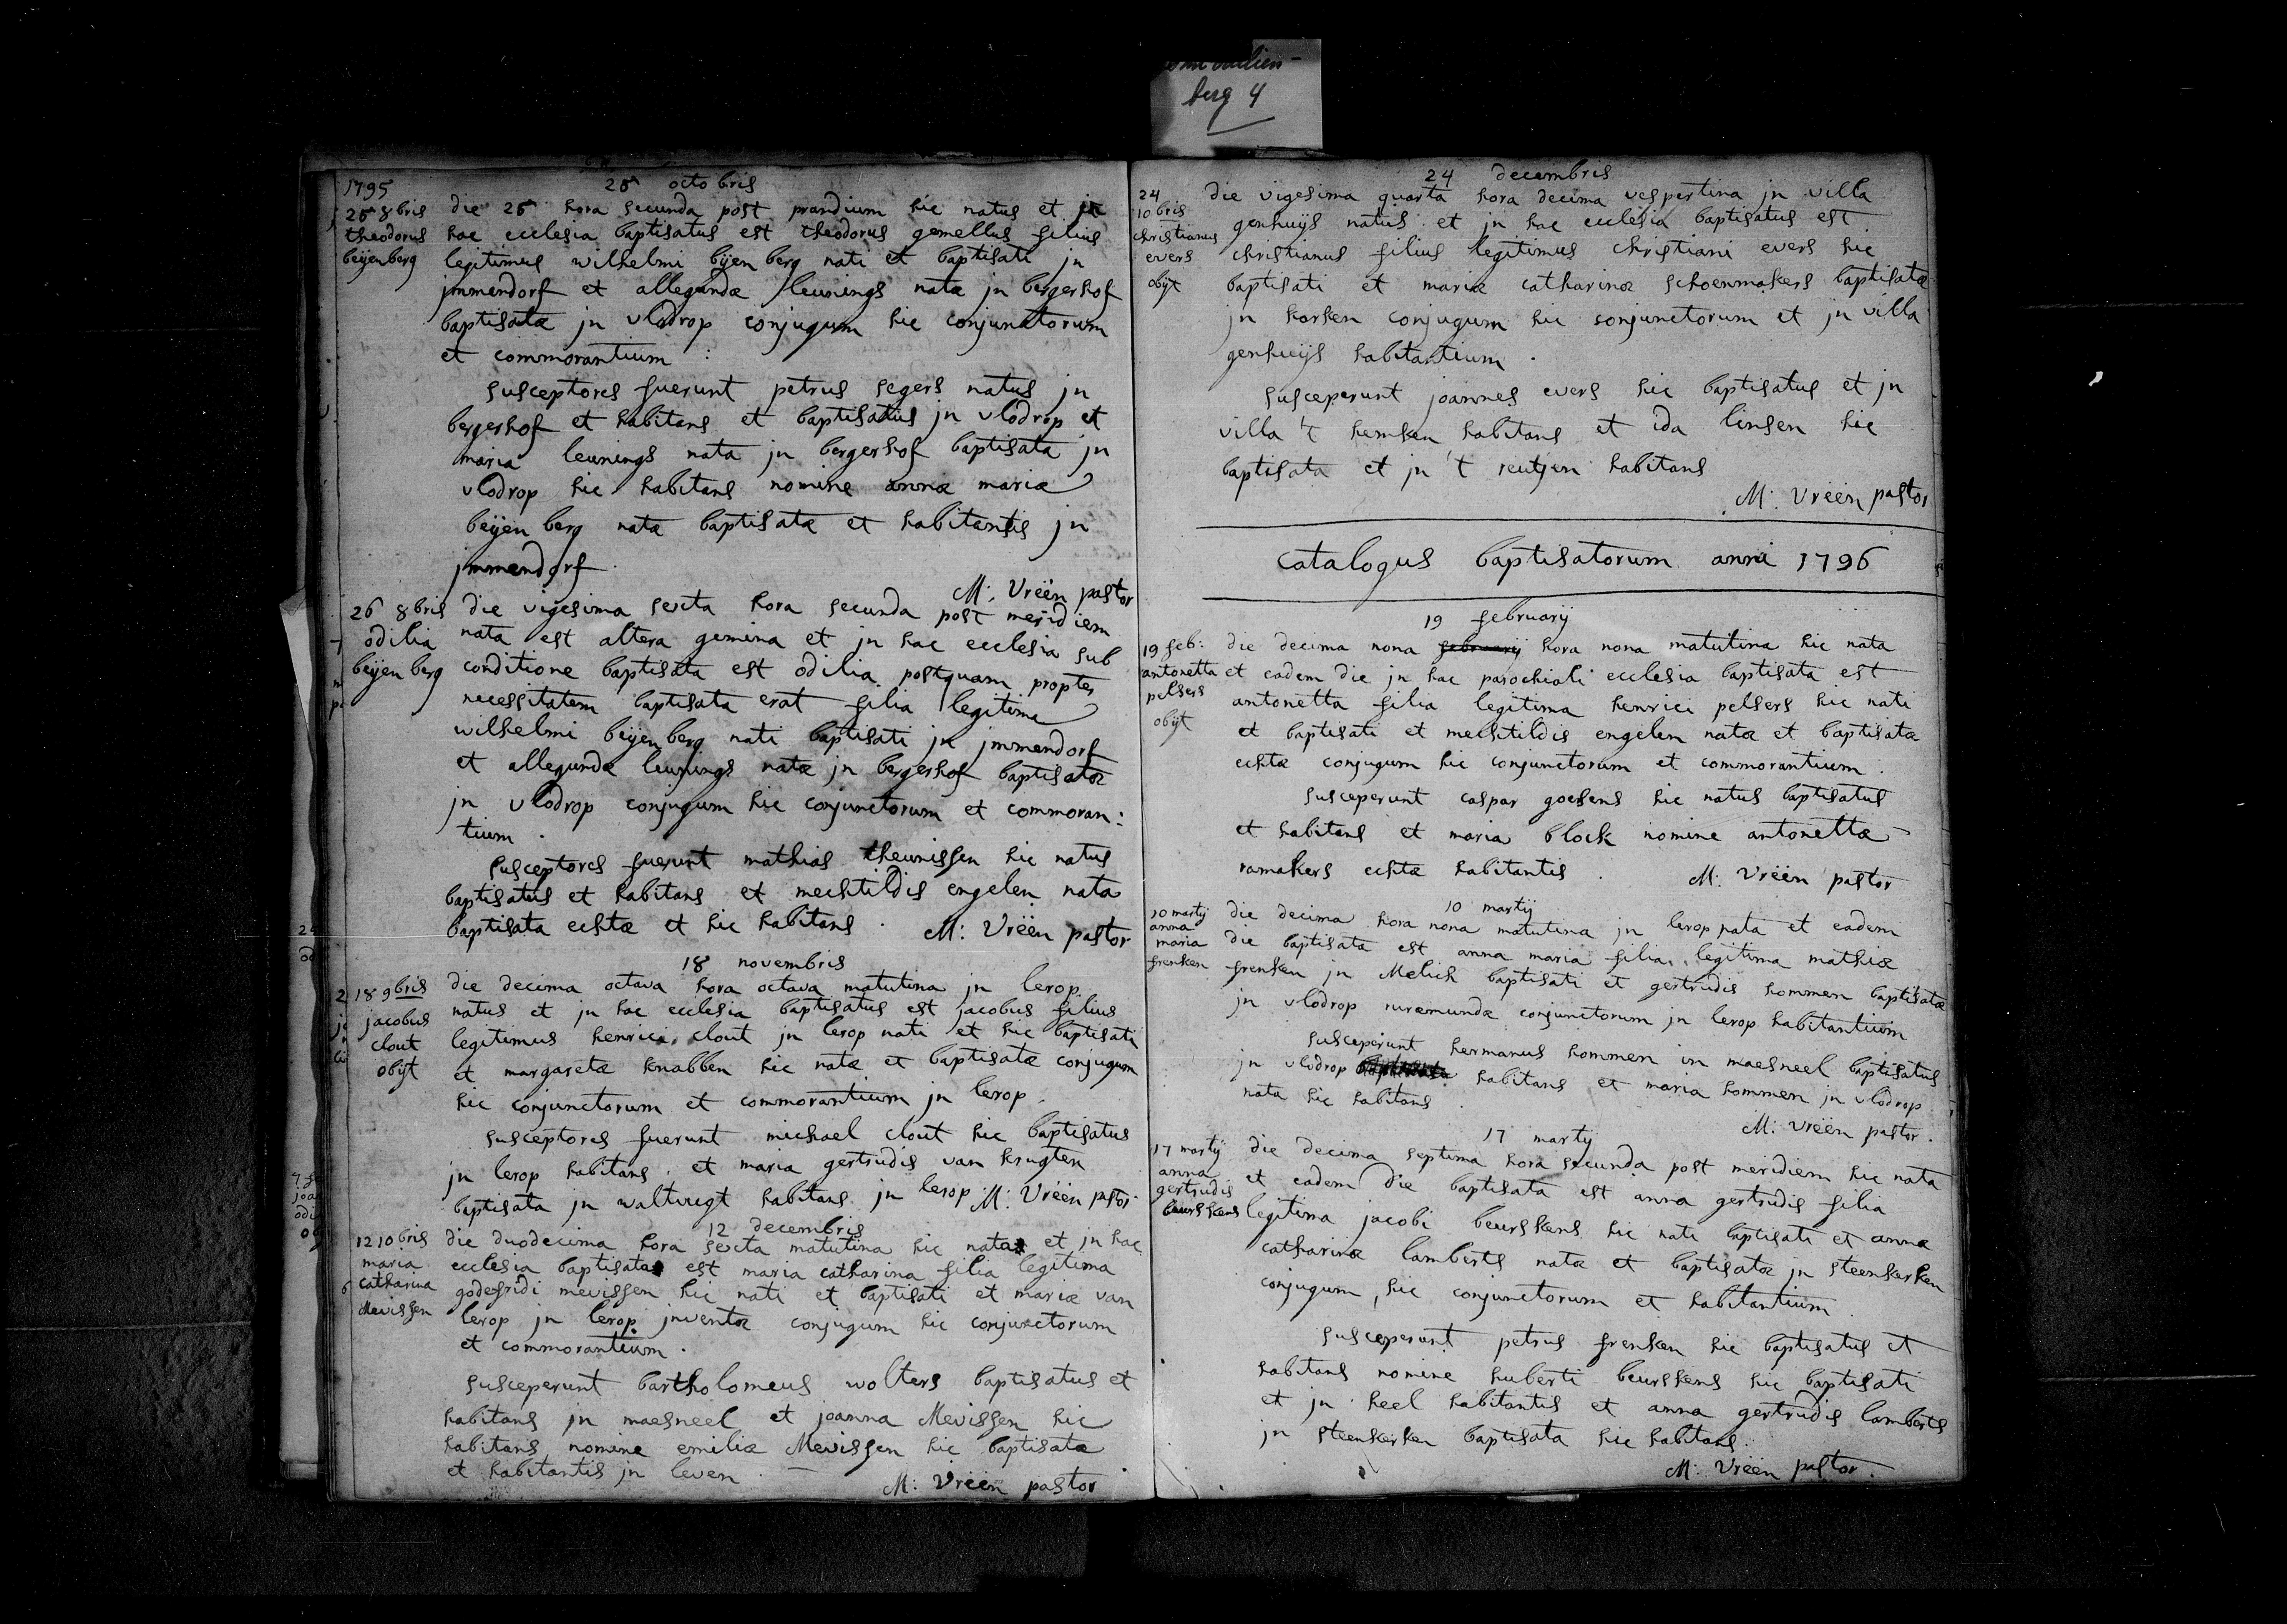 berg 4
1795
26 octobris
26 8bris
theodorus
beijenberg
die 26 hora secunda post prandium hic natus et jn
hac ecclesia baptisatus est theodorus gemellus filius
legitimus wilhelmi bijenberg nati et baptisati jn
jmmendorf et allegundæ leunings natæ jn bergerhof
baptisatæ jn vlodrop conjugum hic conjunctorum
et commorantium :
susceptores fuerunt petrus segers natus jn
bergerhof et habitans et baptisatus jn vlodrop et
maria leunings nata jn bergerhof baptisata jn
vlodrop hic habitans nomine annæ mariæ
beijenberg natæ baptisatæ et habitantis jn
jmmendorf.
M: Vrëën pastor
26 8bris
odilia
beijenberg
die vigesima sexta hora secunda post meridiem
nata est altera gemina et jn hac ecclesia sub
conditione baptisata est odilia postquam propter
necessitatem baptisata erat filia legitima
wilhelmi beijenberg nati baptisati jn jmmendorf
et allegundæ leunings natæ jn bergerhof baptisatæ
jn vlodrop conjugum hic conjunctorum et commoran:
tium .
susceptores fuerunt mathias theunissen hic natus
baptisatus et habitans et mechtildis engelen nata
baptisata echtæ et hic habitans . M: Vrëën pastor
18 novembris
18 9bris
jacobus
clout
obijt
die decima octava hora octava matutina jn lerop
natus et jn hac ecclesia baptisatus est jacobus filius
legitimus henrici clout jn lerop nati et hic baptisati
et margaretæ knabben hic natæ et baptisatæ conjugum
hic conjunctorum et commorantium jn lerop .
susceptores fuerunt michael clout hic baptisatus
jn lerop habitans . et maria gertrudis van krugten
baptisata jn walturgt habitans jn lerop . M: Vrëën pastor
12 decembris
12 10bris
maria
catharina
Mevissen
die duodecima hora sexta matutina hic nata et jn hac
ecclesia baptisata est maria catharina filia legitima
godefridi mevissen hic nati et baptisati et mariæ van
lerop jn lerop jnventæ conjugum hic conjunctorum
et commorantium .
susceperunt bartholomeus wolters baptisatus et
habitans jn maesneel et joanna Mevissen hic
habitans nomine emiliæ Mevissen hic baptisatæ
et habitantis jn leven .
M: Vrëën pastor
24 decembris
24
10bris
christianus
evers
obijt
die vigesima quarta hora decima vespertina jn villa
genhuijs natus et jn hac ecclesia baptisatus est
christianus filius legitimus christiani evers hic
baptisati et mariæ catharinæ schoenmakers baptisatæ
jn karken conjugum hic sonjunctorum et jn villa
genhuijs habitantium .
susceperunt joannes evers hic baptisatus et jn
villa 't hemken habitans et ida linsen hic
baptisata et jn 't reutjen habitans
M: Vrëën pastor
catalogus baptisatorum anni 1796
19 februarij
19 feb:
antonetta
pelsers
obijt
die decima nona februarij hora nona matutina hic nata
et eadem die jn hac parochiali ecclesia baptisata est
antonetta filia legitima henrici pelsers hic nati
et baptisati et mechtildis engelen natæ et baptisatæ
echtæ conjugum hic conjunctorum et commorantium .
susceperunt caspar goesens hic natus baptisatus
et habitans et maria block nomine antonettæ
ramakers echtæ habitantis . M: Vrëën pastor
10 martij
10 martij
anna
maria
frenken
die decima hora nona matutina jn lerop nata et eadem
die baptisata est anna maria filia legitima mathiæ
frenken jn Melick baptisati et gertrudis hommen baptisatæ
jn vlodrop ruræmundæ conjunctorum jn lerop habitantium
susceperunt hermanus hommen in maesneel baptisatus
jn vlodrop habitans et maria hommen jn vlodrop
nata hic habitans .
M: Vrëën pastor .
17 martij
17 martij
anna
gertrudis
beurskens
die decima septima hora secunda post meridiem hic nata
et eadem die baptisata est anna gertrudis filia
legitima jacobi beurskens hic nati baptisati et annæ
catharinæ lamberts natæ et baptisatæ jn steenkerken
conjugum, hic conjunctorum et habitantium .
susceperunt petrus frenken hic baptisatus et
habitans nomine huberti beurskens hic baptisati
et jn heel habitantis et anna gertrudis lamberts
jn steenkerken baptisata hic habitans.
M: Vrëën pastor .